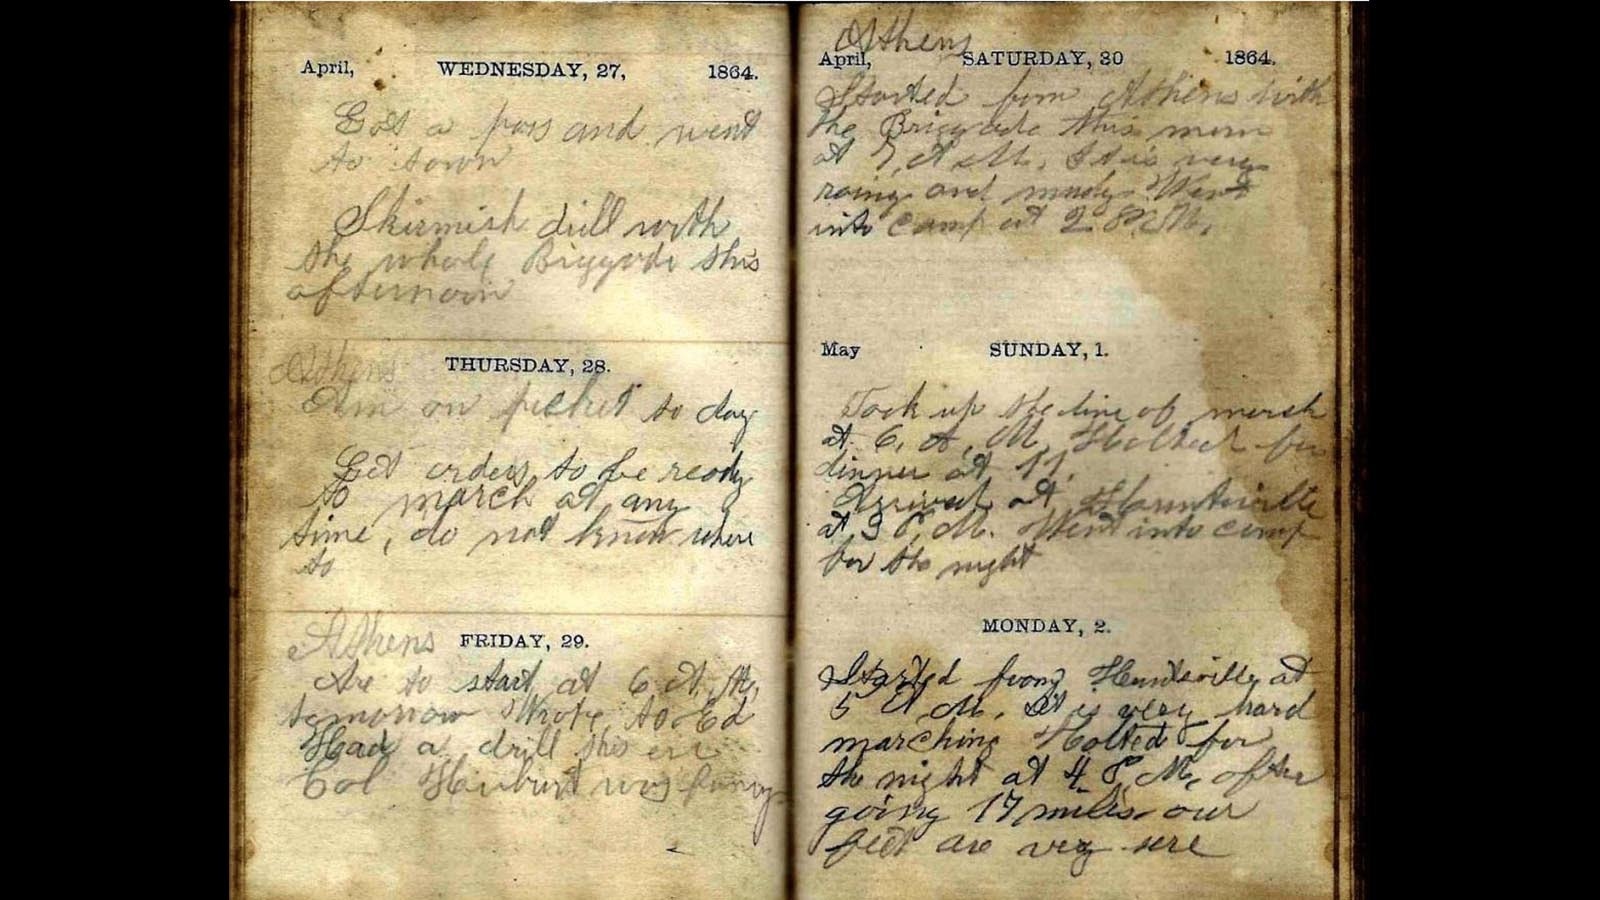 April, WEDNESDAY, 27, 1864.
Got a pass and went
to town
Skirmish drill with
the whole Briggade this
afternoon
Athens THURSDAY, 28.
Am on picket to day
Get orders to be ready
to march at any
time, do not know where
to
Athens FRIDAY, 29.
Are to start at 6 A. M.
tomorrow Wrote to Ed
Had a drill this
Col was
Athens
April, SATURDAY, 30 1864.
Started from Athens with
the Briggade this morn
at 7, A. M. It is very
rainy and mudy Went
into camp at 2 P. M.
May SUNDAY, 1.
Took up the line of march
at 6, A, M, Holted for
dinner at 11
Arrived at Hountsville
at 3 P, M. Went into camp
for the night
MONDAY, 2.
Started from Huntsville at
5 A, M, It is very hard
marching Holted for
the night at 4 P, M, after
going 17 miles our
feet are very sore